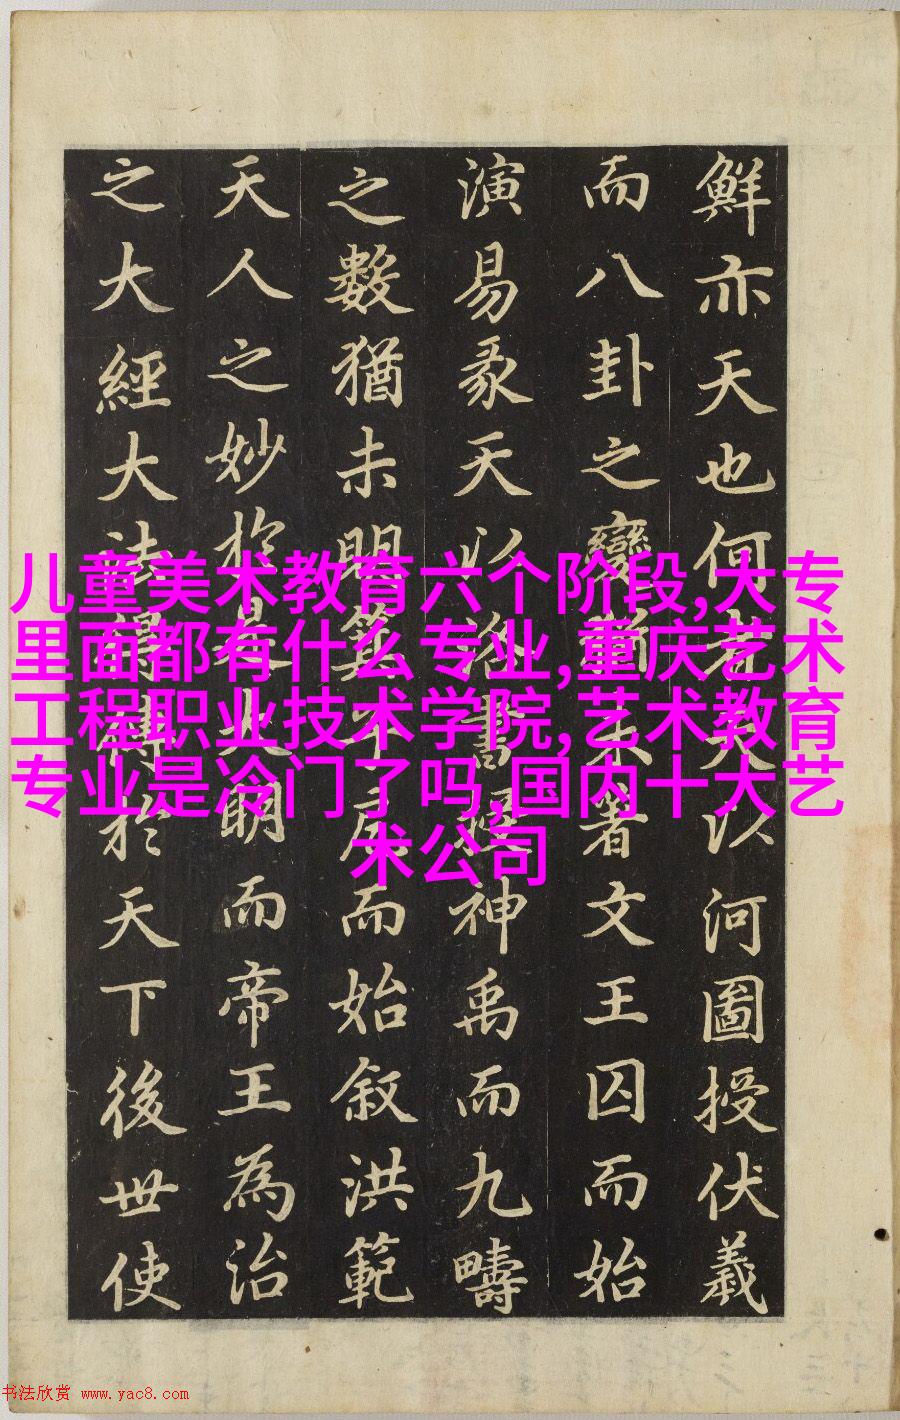 鮮亦天也何者天以河圖授伏羲
而八卦之變猶未著文王囚而始
演易彖天以洛書授神禹而九疇
之數猶未明箕子而始叙洪範
天人之妙於是大明而帝王為治
之大經大法得傳於天下後世使
儿童美术教育六个阶段,大专
里面都有什么专业,重庆艺术
工程职业技术学院,艺术教育
专业是冷门了吗,国内十大艺
术公司
书法欣赏 www.yac8.com